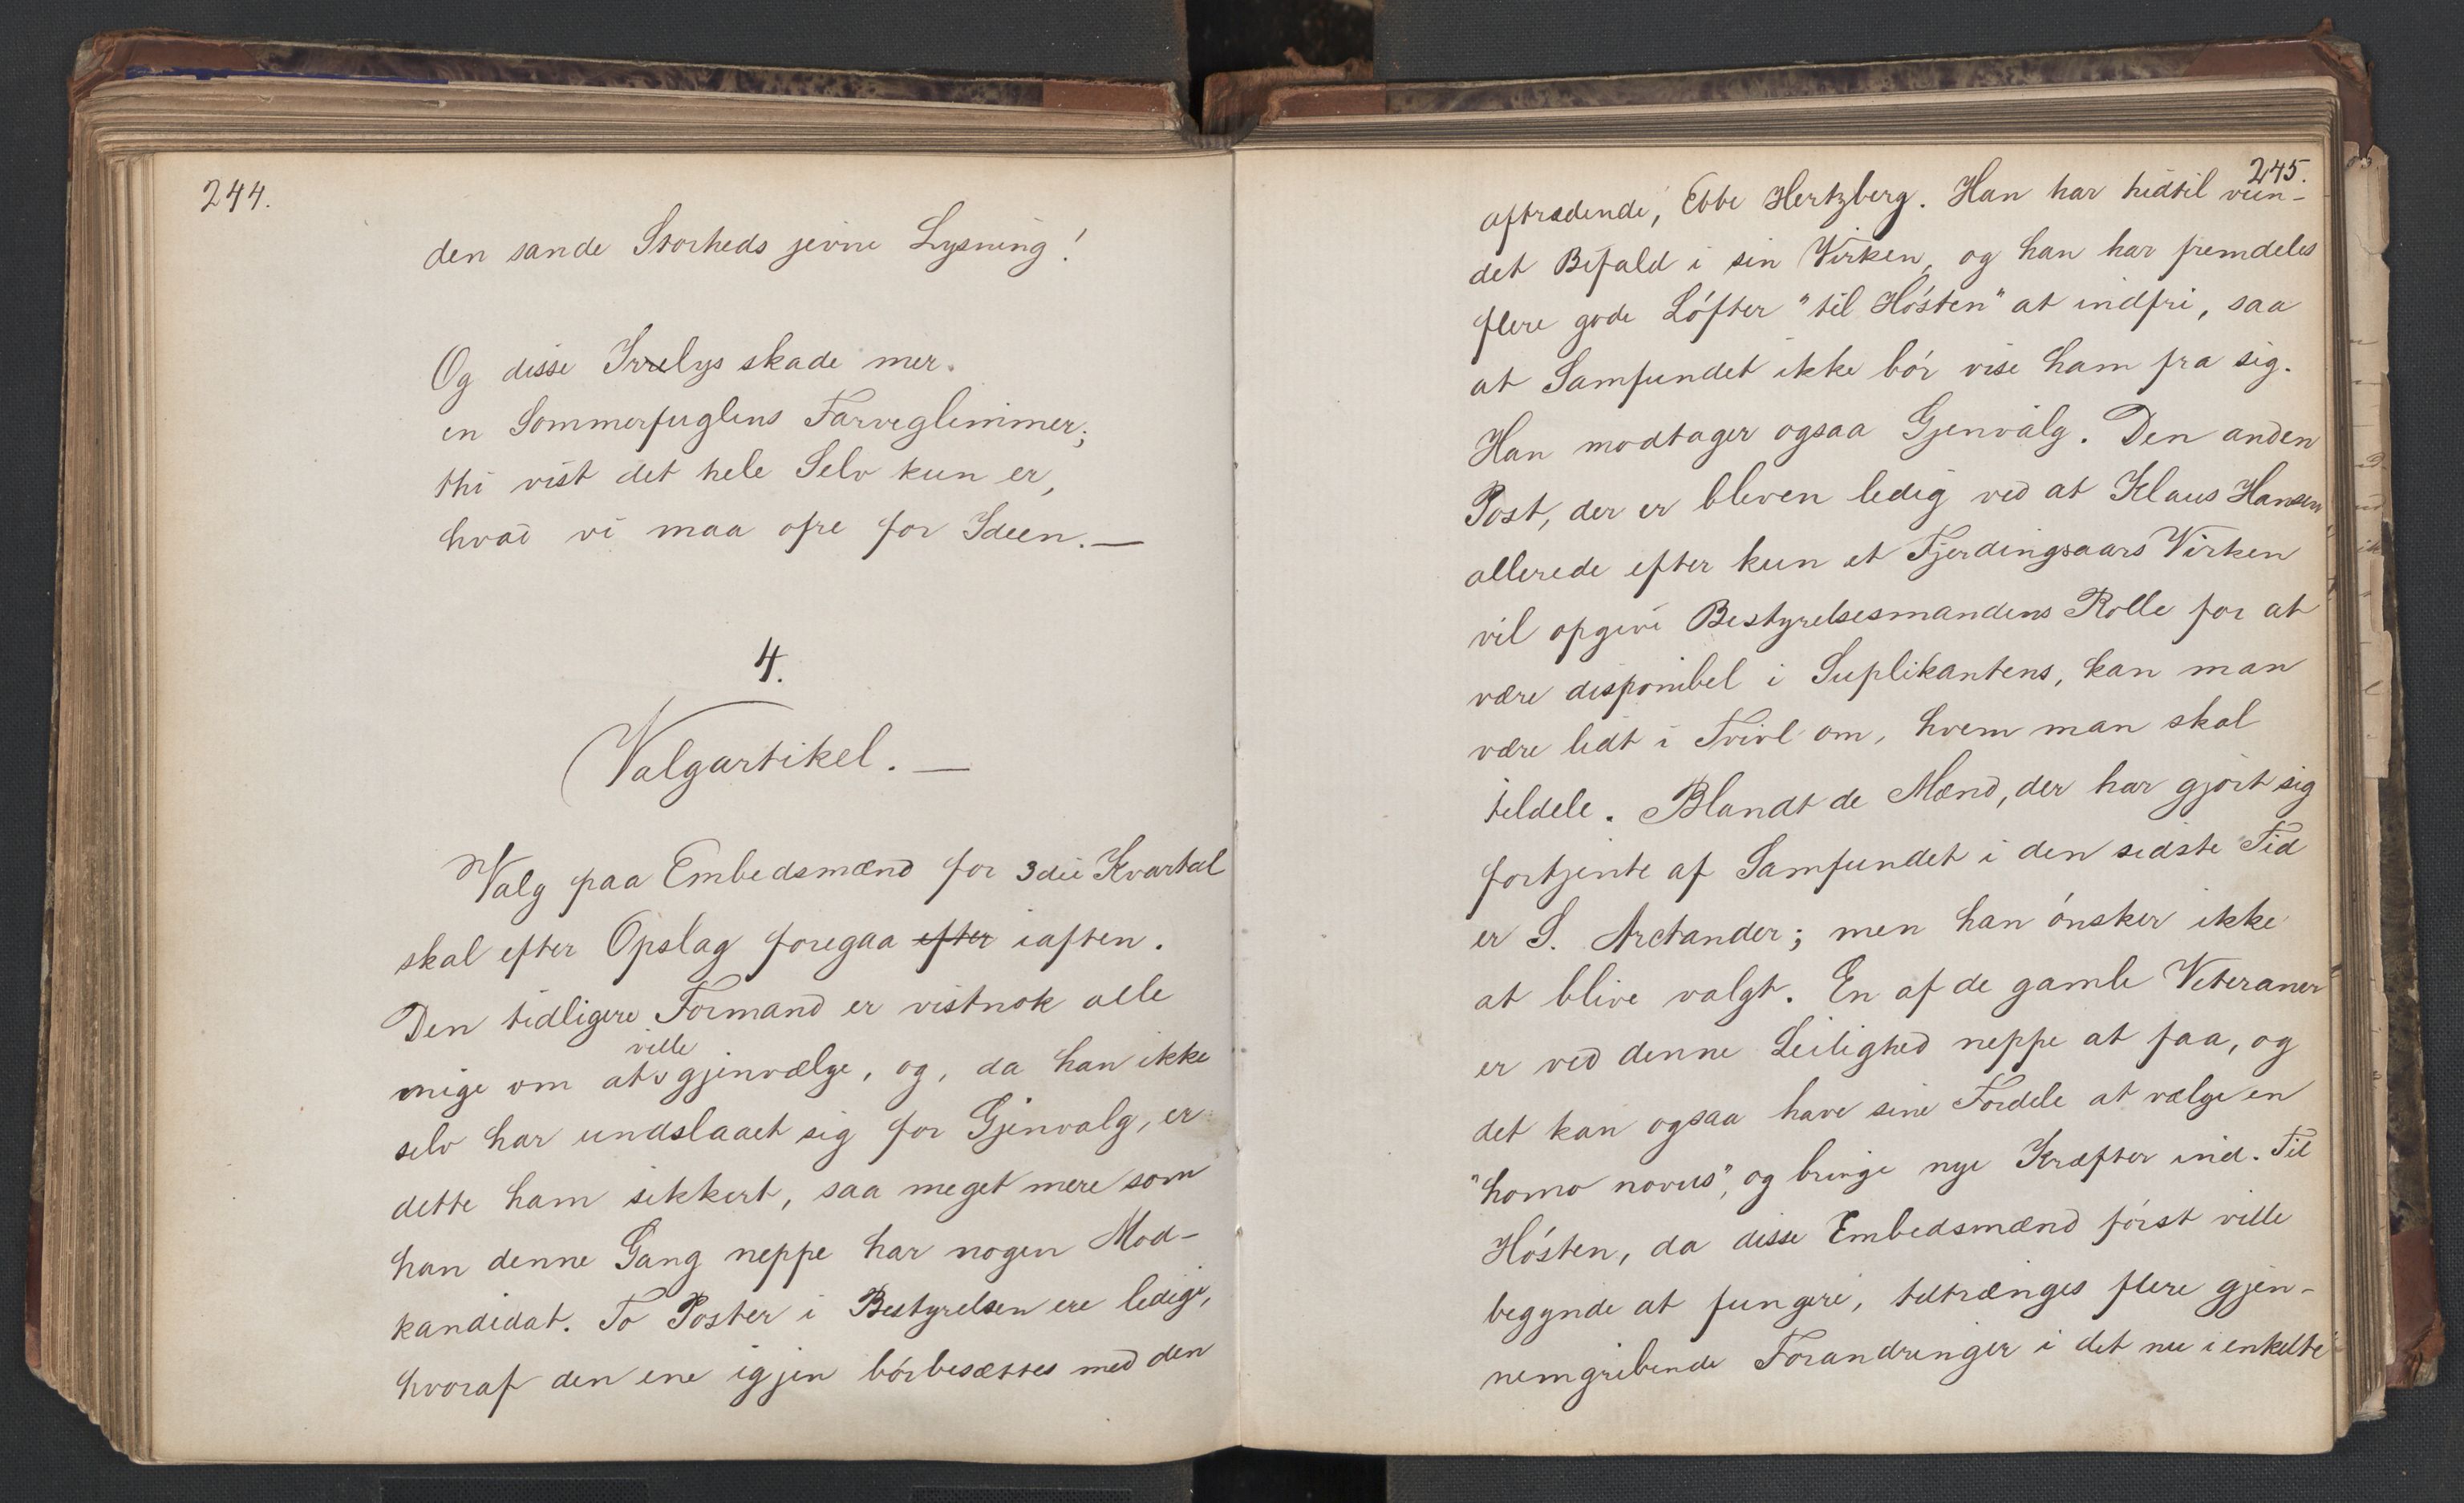 244.
den sande Storheds jevne Lysning!
Og disse Irrelys skade mer.
en Sommerfuglens Farveglimmer;
thi vist det hele Selv kun er,
hvad vi maa ofre for Ideen. —
4.
Valgartikel. —
Valg paa Embedsmænd for 3die Kvartal
skal efter Opslag foregaa efter iaften.
Den tidligere Formand er vistnok alle
ville
enige om at gjenvælge, og, da han ikke
selv har undslaaet sig for Gjenvalg, er
dette ham sikkert, saa meget mere som
han denne Gang neppe har nogen Mod-
kandidat. To Poster i Bestyrelsen ere ledige,
hvoraf den ene igjen bör besættes med den
245.
aftrædende, Ebbe Hertzberg. Han har hidtil vun-
det Bifald i sin Virken, og han har fremdeles
flere gode Löfter "til Hösten" at indfri, saa
at Samfundet ikke bör vise ham fra sig.
Han modtager ogsaa Gjenvalg. Den anden
Post, der er bleven ledig ved at Klaus Hansen
allerede efter kun et Fjerdingsaars Virken
vil opgive Bestyrelsesmandens Rolle for at
være disponibel i Suplikantens, kan man
være lidt i Tvivl om, hvem man skal
tildele. Blandt de Mænd, der har gjort sig
fortjente af Samfundet i den sidste Tid
er S. Arctander; men han önsker ikke
at blive valgt. En af de gamle Veteraner
er ved denne Leilighed neppe at faa, og
det kan ogsaa have sine Fordele at vælge en
"homo novus", og bringe nye Kræfter ind. Til
Hösten, da disse Embedsmænd förist ville
begynde at fungere, tiltrænges flere gjen-
nemgribende Forandringer i det nu i enkelte